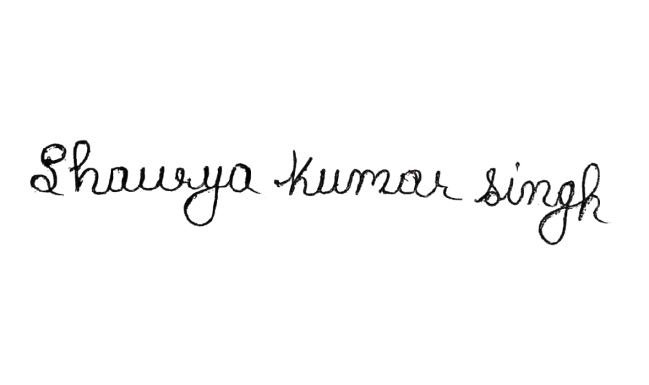 Shaurya kumar singh